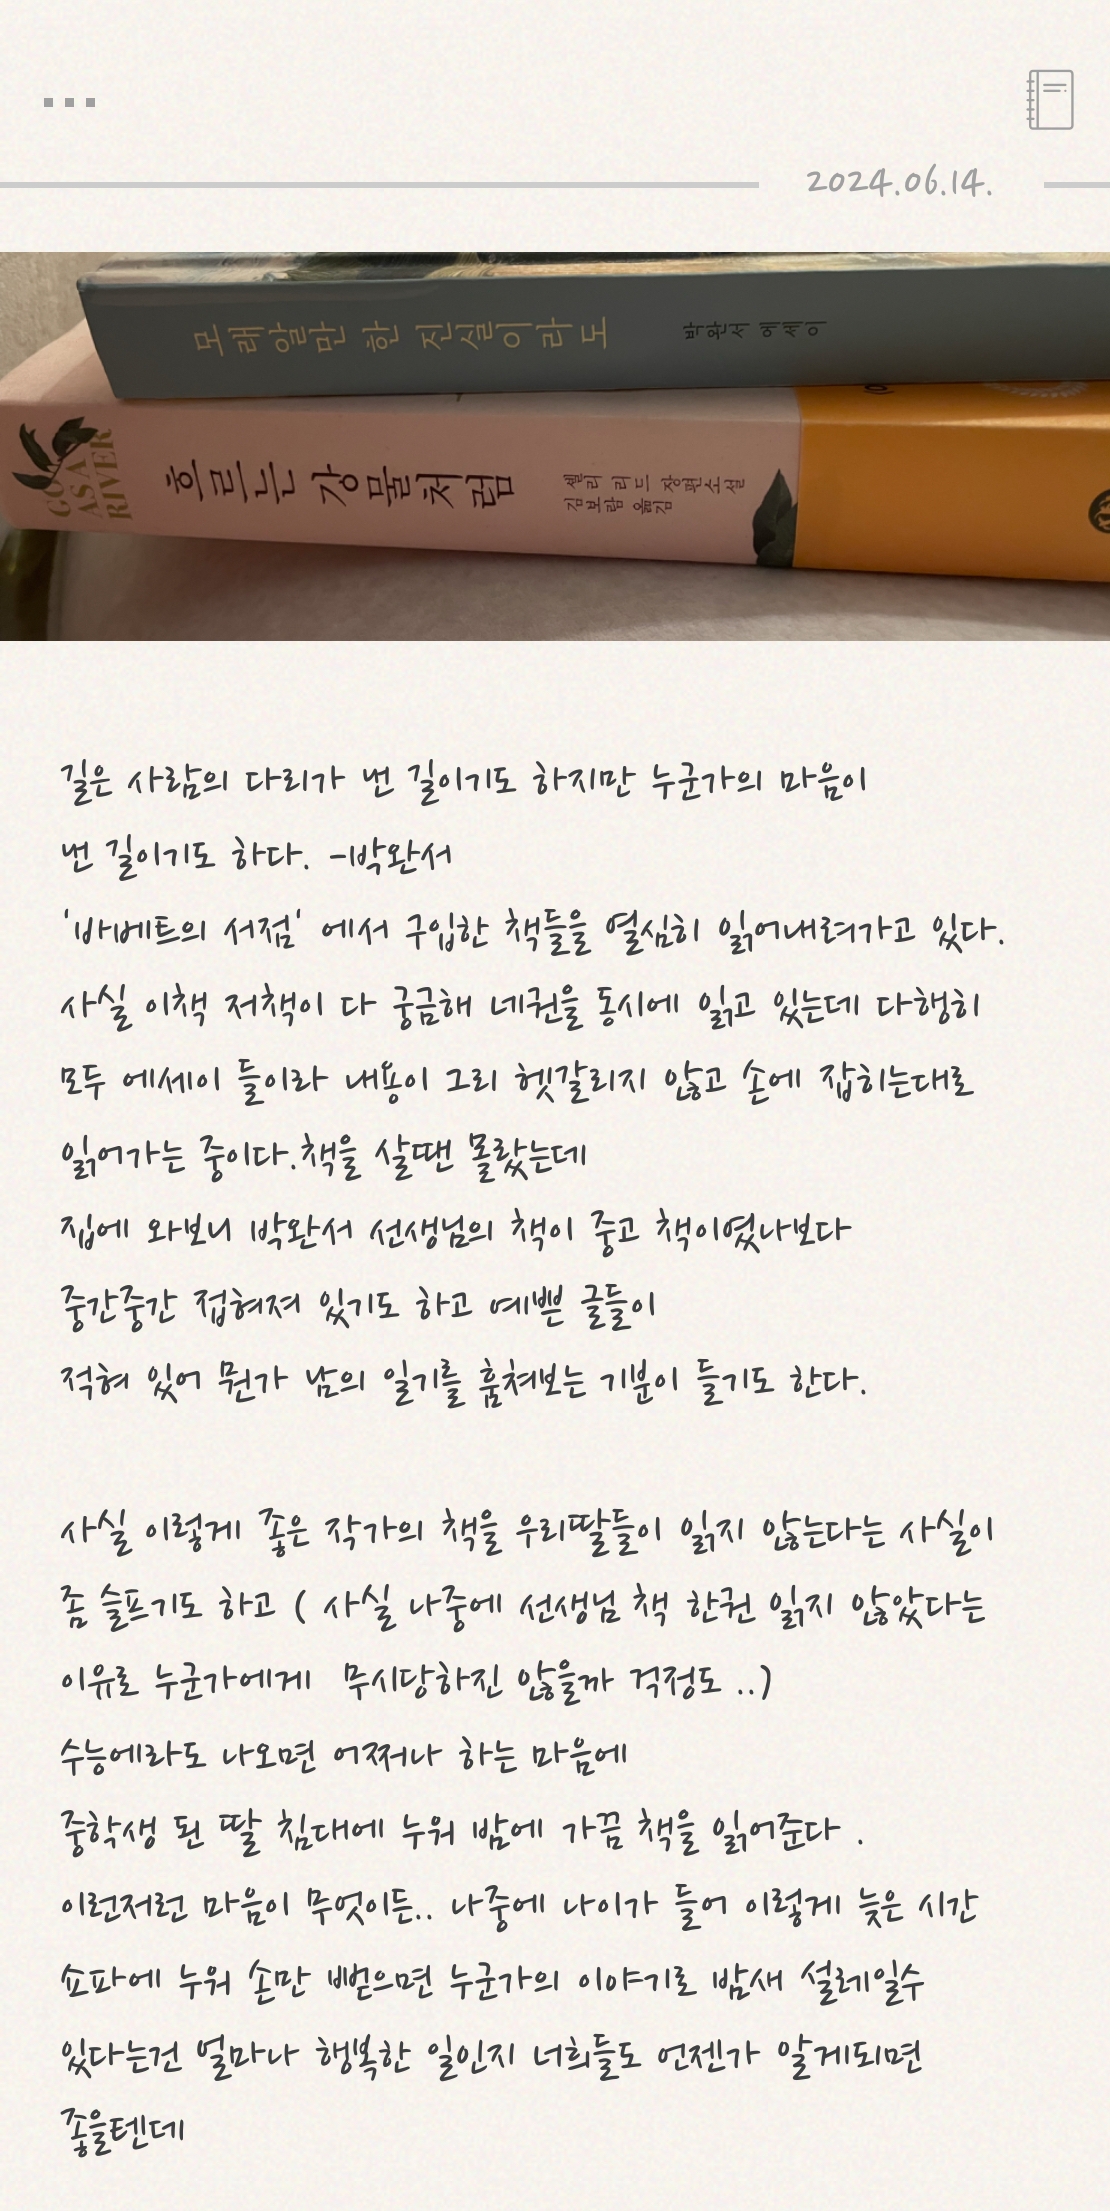 2024.06.14.
모래알만 한 진실이라도 박완서 에세이
GO AS A RIVER
흐르는 강물처럼 셸리 리드 장편소설
김보람 옮김
길은 사람의 다리가 낸 길이기도 하지만 누군가의 마음이
낸 길이기도 하다. -박완서
'바베트의 서점' 에서 구입한 책들을 열심히 읽어내려가고 있다.
사실 이책 저책이 다 궁금해 네권을 동시에 읽고 있는데 다행히
모두 에세이 들이라 내용이 그리 헷갈리지 않고 손에 잡히는대로
읽어가는 중이다.책을 살땐 몰랐는데
집에 와보니 박완서 선생님의 책이 중고 책이였나보다
중간중간 접혀져 있기도 하고 예쁜 글들이
적혀 있어 뭔가 남의 일기를 훔쳐보는 기분이 들기도 한다.
사실 이렇게 좋은 작가의 책을 우리딸들이 읽지 않는다는 사실이
좀 슬프기도 하고 ( 사실 나중에 선생님 책 한권 읽지 않았다는
이유로 누군가에게 무시당하진 않을까 걱정도 ..)
수능에라도 나오면 어쩌나 하는 마음에
중학생 된 딸 침대에 누워 밤에 가끔 책을 읽어준다 .
이런저런 마음이 무엇이든.. 나중에 나이가 들어 이렇게 늦은 시간
쇼파에 누워 손만 뻗으면 누군가의 이야기로 밤새 설레일수
있다는건 얼마나 행복한 일인지 너희들도 언젠가 알게되면
좋을텐데